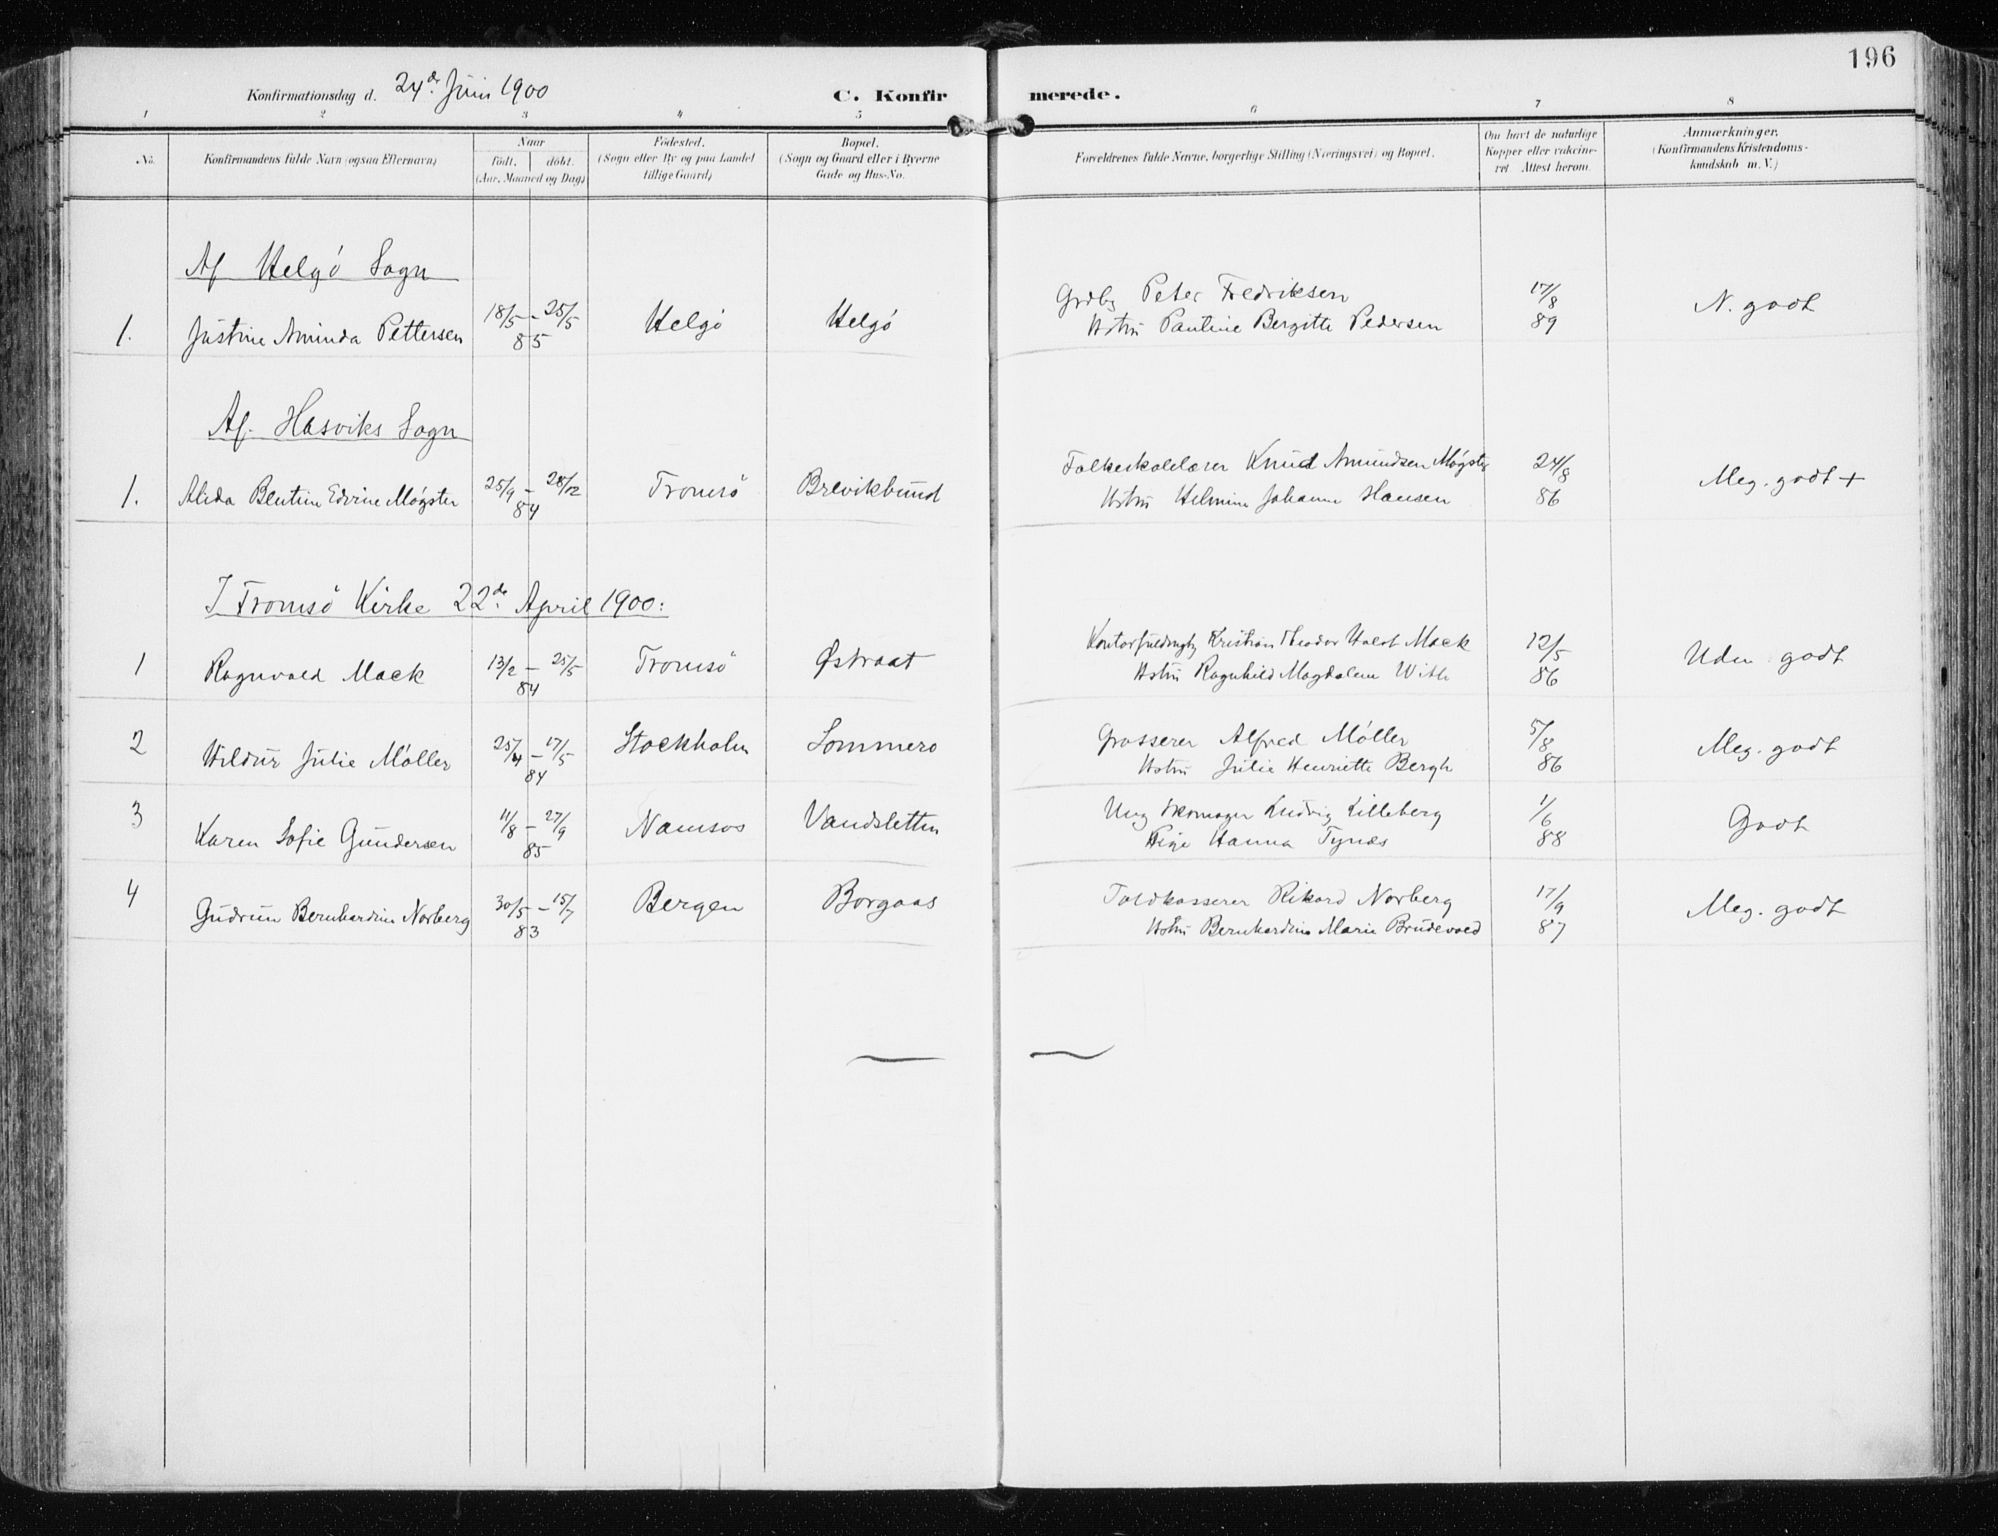 196
Konfirmationsdag d. 24de Juni 1900
C. Konfirmerede.
1 2 3 4 5 6 7 8
No. | Konfirmandens fulde Navn (ogsaa Efternavn) | Naar født. døbt. (Aar, Maaned og Dag) | Fødested. (Sogn eller By og paa Landet tillige Gaard) | Bopæl. (Sogn og Gaard eller i Byerne Gade og Hus-No. | Forældrenes fulde Navne, borgerlige Stilling (Næringsvei) og Bopæl. | Om havt de naturlige Kopper eller vakcineret. Attest herom. | Anmærkninger. (Konfirmandens Kristendomskundskab m. V.)
Af Helgö Sogn
1. Justine Aminda Pettersen 18/5 - 25/5 85 Helgö Helgö Grdbr Peter Fredriksen 17/8 89 N. godt
Hstru Pauline Bergitte Pedersen
Af Hasviks Sogn
1. Alida Blentine Edvine Møgster 25/9 - 28/12 84 Tromsö Brevikbund Folkeskolelærer Knud Amundsen Møgster 24/8 86 Meg. godt +
Hstru Helmine Johanne Hansen
I Tromsö Kirke 22de April 1900:
1 Ragnvald Mack 13/2 - 25/5 84 Tromsö Østraat Kontorfuldmgtg Kristian Theodor Mack 12/5 86 Uden godt
Hstru Ragnhild Magdalene With
2 Hildur Julie Møller 25/4 - 17/5 84 Stockholm Sommero Grosserer Alfred Møller 5/8 86 Meg. godt
Hstru Julie Henriette Bergh
3 Karen Sofie Gundersen 11/8 - 27/9 85 Namsos Vandsletten Ung Skomager Ludvig Lilleberg 1/6 88 Godt
Pige Hanna Tynæs
4 Gudrun Bernhardine Norberg 30/5 - 15/7 83 Bergen Borgaas Toldkasserer Rikard Norberg 17/9 87 Meg. godt
Hstru Bernhardine Marie Brudevold